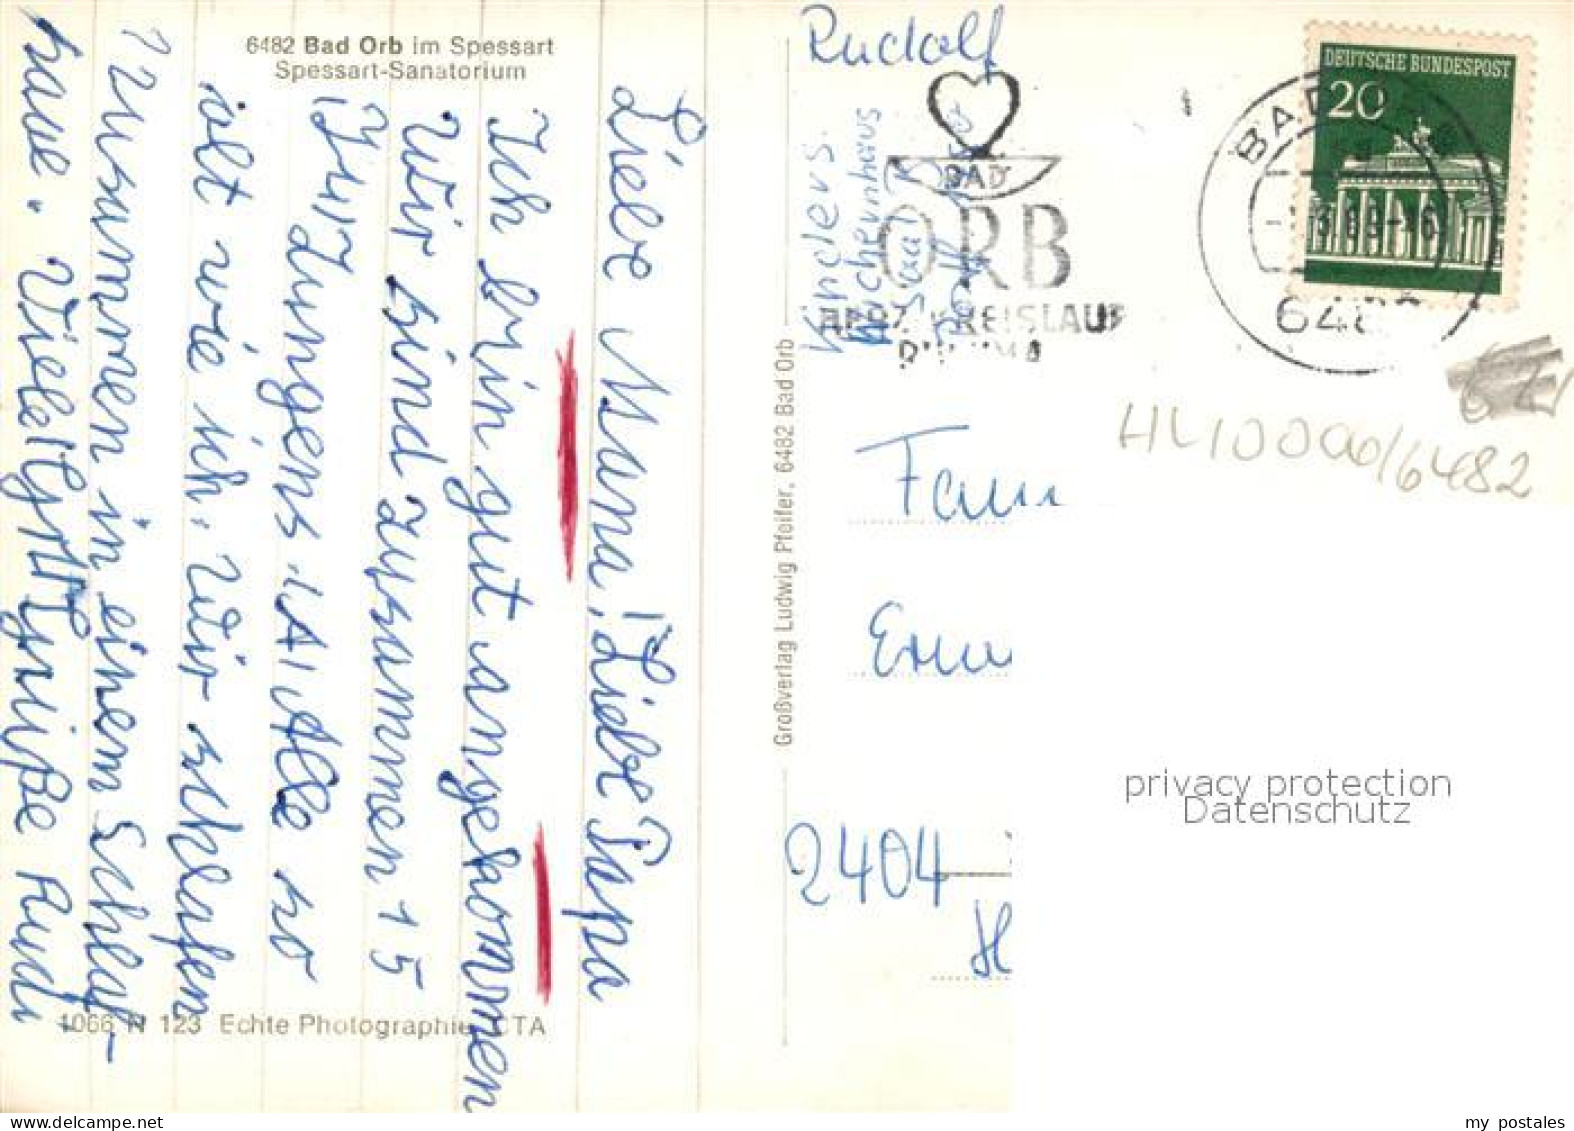 6482 Bad Orb im Spessart
Spessart-Sanatorium
Liebe Mama, Liebe Papa!
Ich bin gut angekommen
Wir sind zusammen 15
Jungens. Alle so
alt wie ich. Wir schlafen
zusammen in einem Schlaf-
Viele Grüße Rudi
1066 N 123 Echte Photographie CTA
Großverlag Ludwig Pfeifer, 6482 Bad Orb
Rudolf
Kinders.
Küchernhaus
BAD
ORB
HERZ KREISLAUF
DEUTSCHE BUNDESPOST
20
BAD
6482
HL1000a0/6482
Fam
2404
H
privacy protection
Datenschutz
my postales